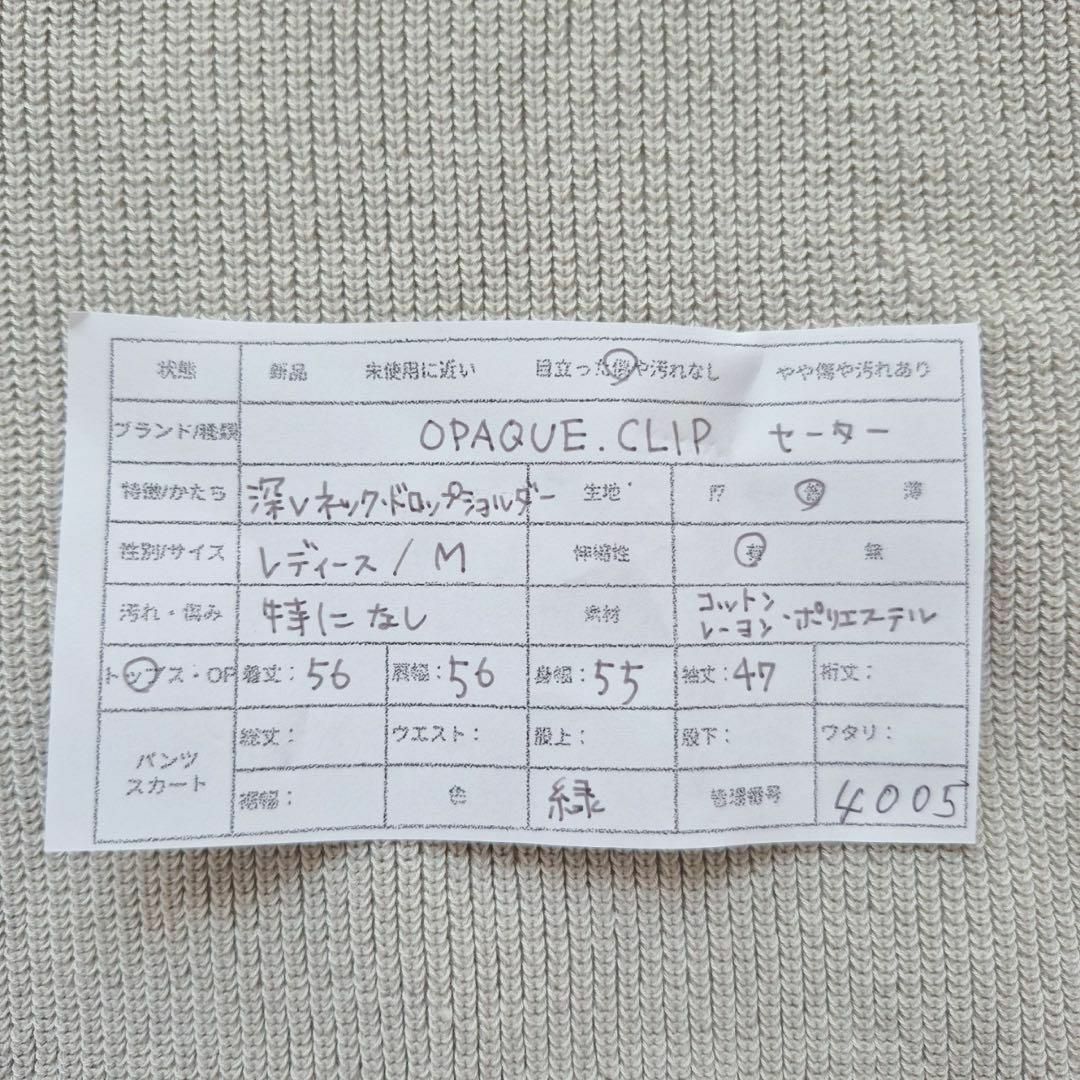 状態 新品 未使用に近い 目立った傷や汚れなし やや傷や汚れあり
ブランド/種類 OPAQUE.CLIP セーター
特徴/かたち 深Vネック・ドロップショルダー 生地 厚 普 薄
性別/サイズ レディース/M 伸縮性 有 無
汚れ・傷み 特になし 素材 コットン レーヨン・ポリエステル
トップス・OP 着丈:56 肩幅:56 身幅:55 袖丈:47 裄丈:
パンツ スカート 総丈: ウエスト: 股上: 股下: ワタリ:
裾幅: 色 緑 管理番号 4005